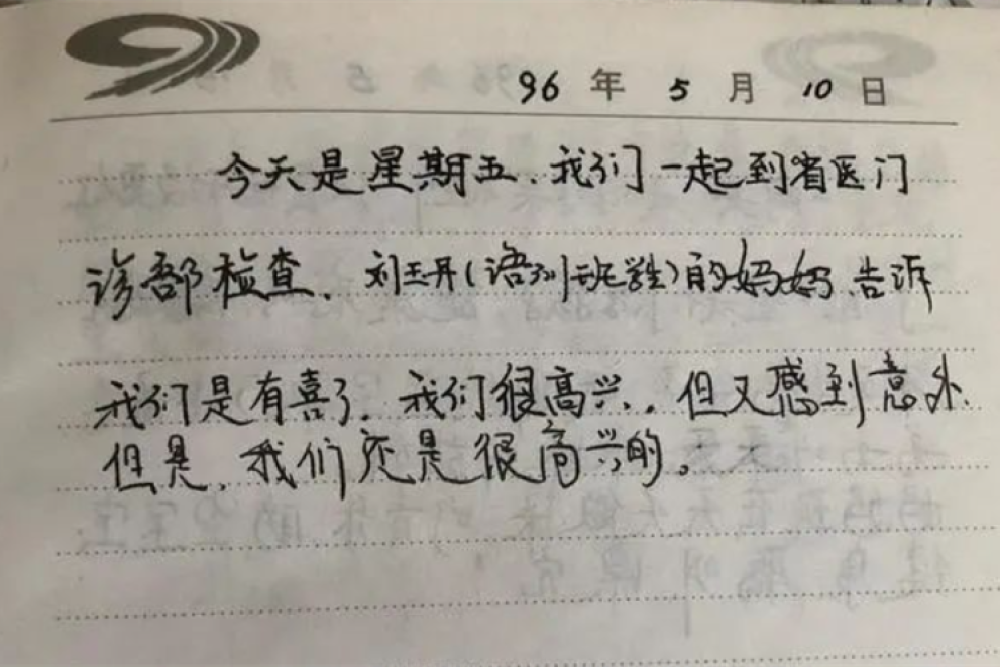 96 年 5 月 10 日
今天是星期五、我们一起到省医门
诊部检查、刘玉丹(语训班学生)的妈妈告诉
我们是有喜了、我们很高兴、但又感到意外、
但是、我们还是很高兴的。